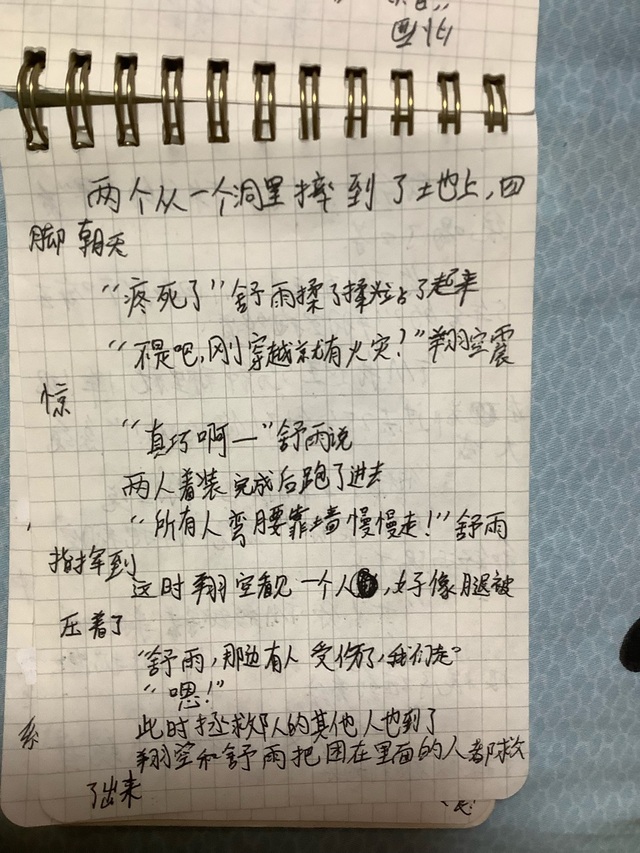 两个从一个洞里摔到了土地上,四
脚朝天
“疼死了”舒雨揉了揉站了起来
“不是吧,刚穿越就有火灾?”翔空震
惊
“真巧啊一”舒雨说
两人着装完成后跑了进去
“所有人弯腰靠墙慢慢走!”舒雨
指挥到
这时翔空看见一个人,好像腿被
压着了
“舒雨,那边有人受伤了,我们走”
“嗯!”
此时拯救队的其他人也到了
翔空和舒雨把困在里面的人都救
了出来